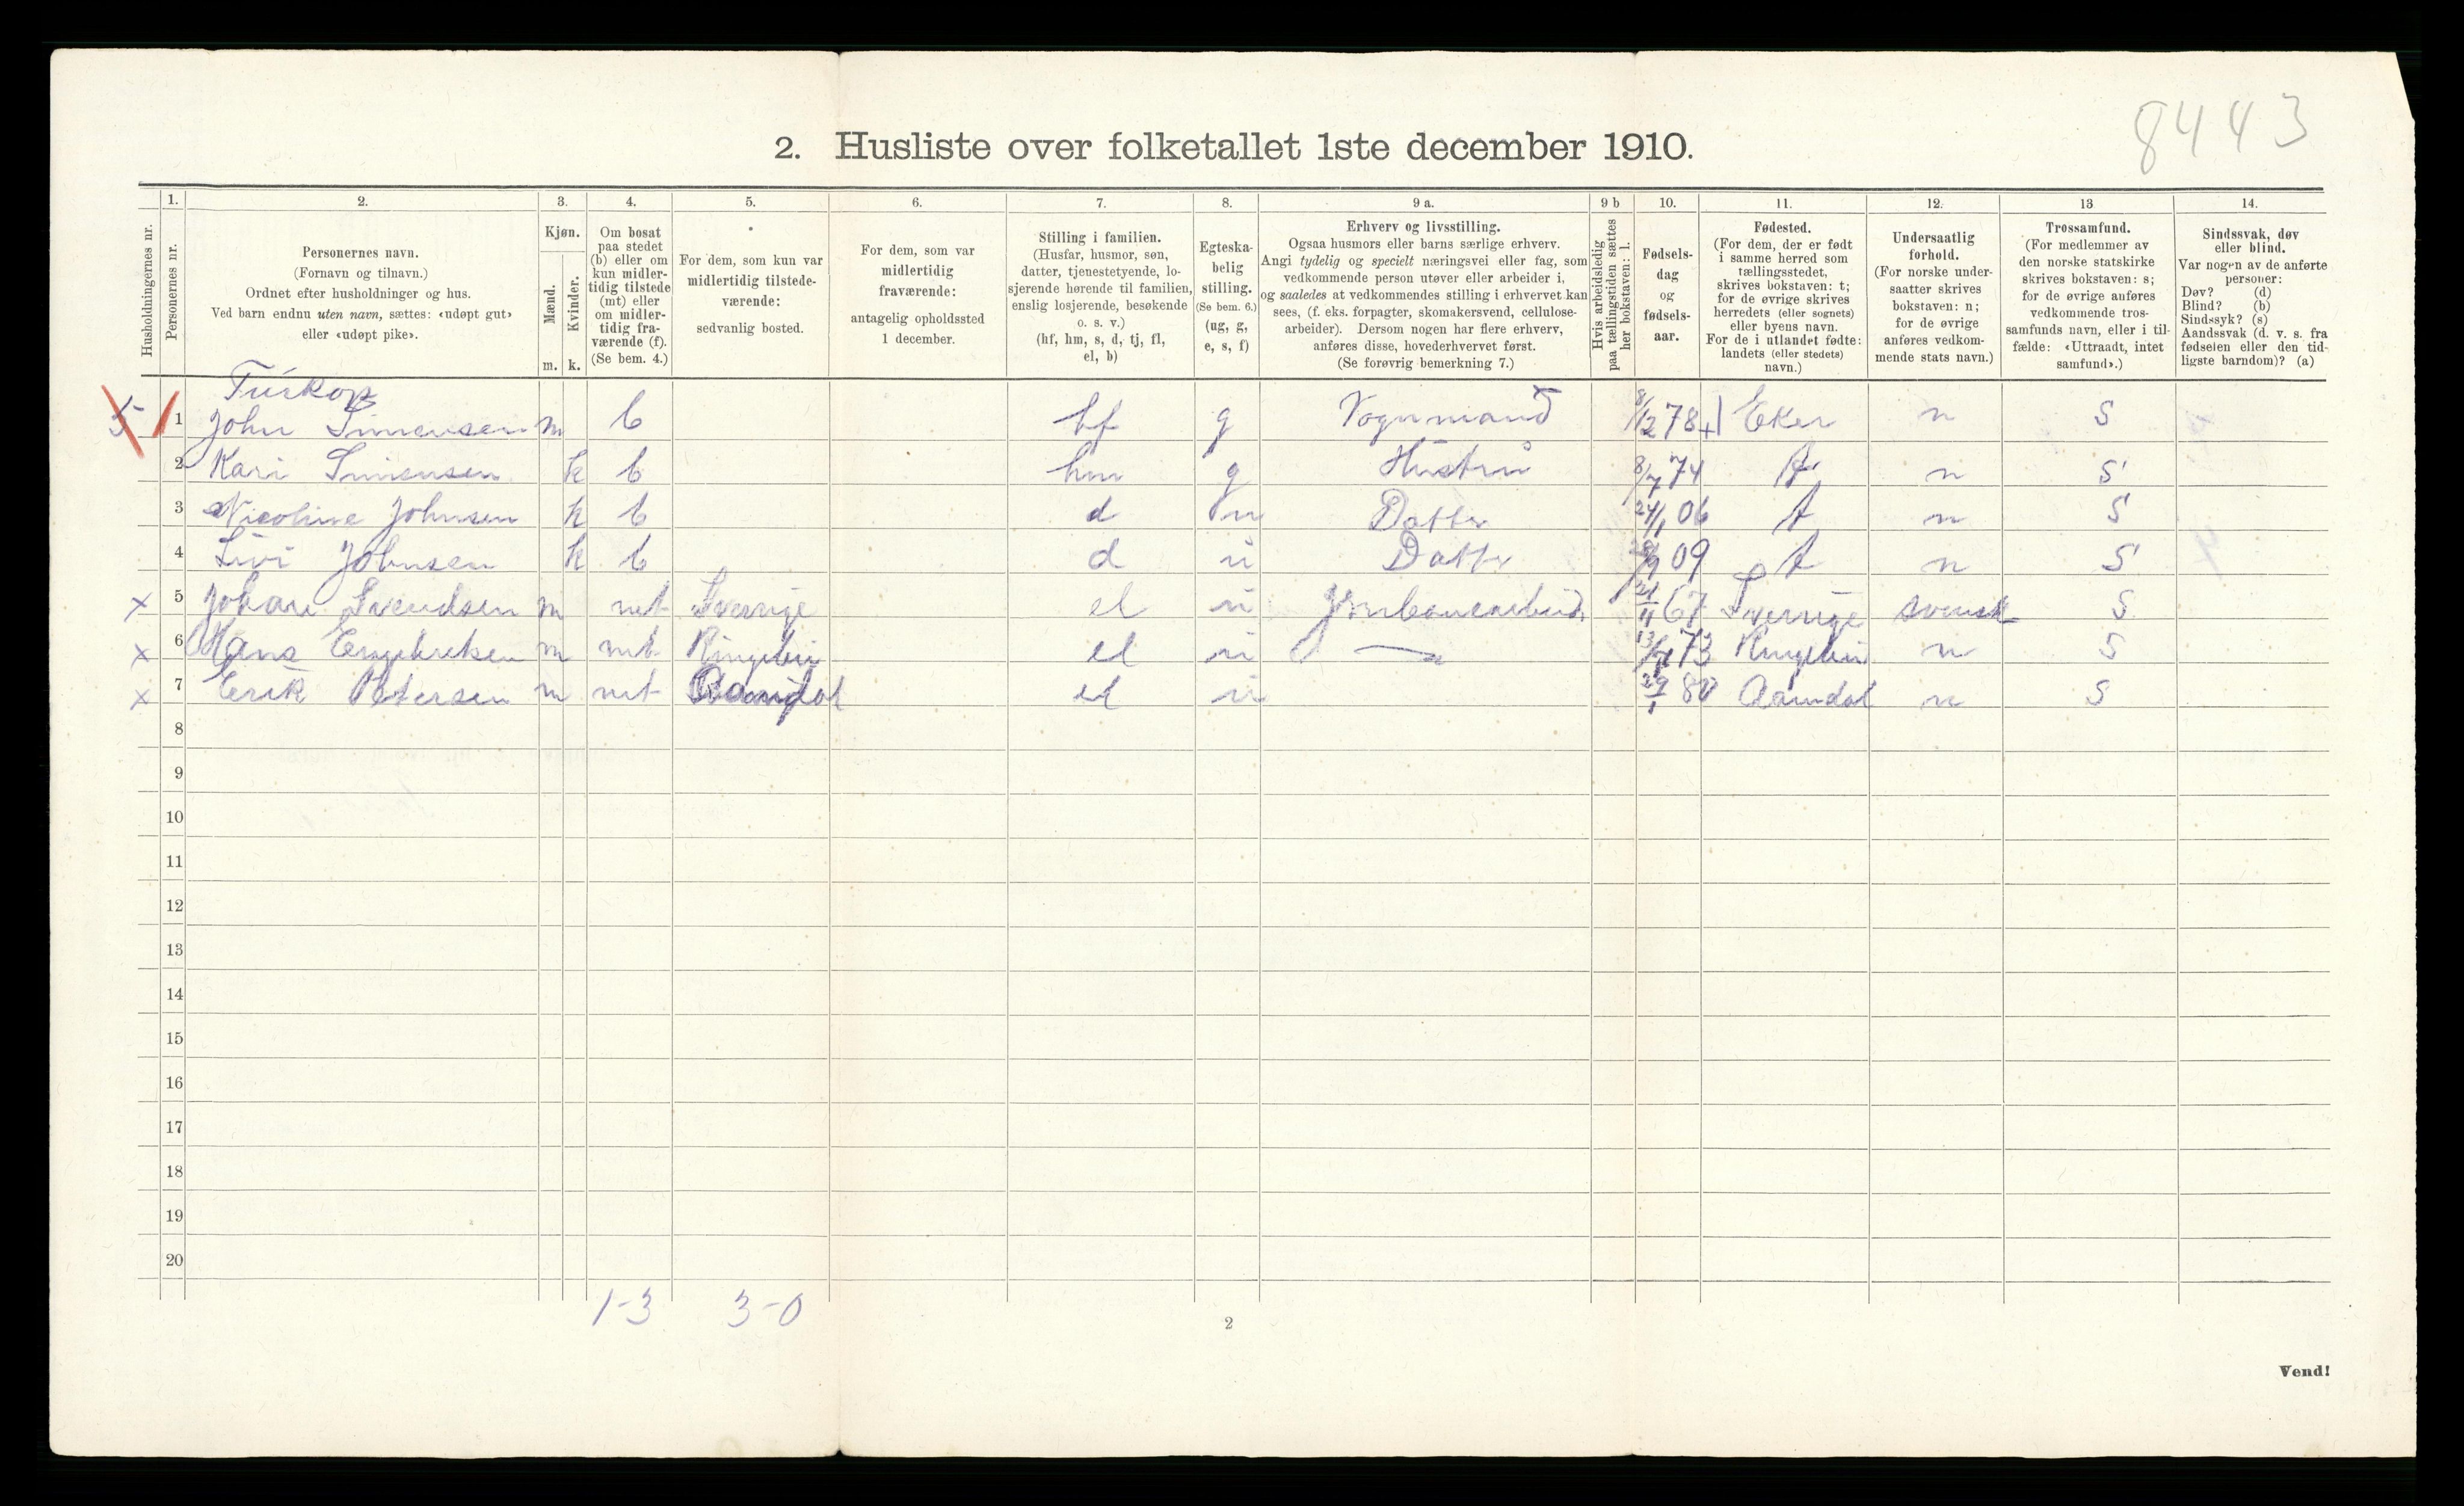 8443
2. Husliste over folketallet 1ste december 1910.
Husholdningernes nr.
1. Personernes nr.
2. Personernes navn. (Fornavn og tilnavn.) Ordnet efter husholdninger og hus. Ved barn endnu uten navn, sættes: «udøpt gut» eller «udøpt pike».
3. Kjøn. Mænd. m. Kvinder. k.
4. Om bosat paa stedet (b) eller om kun midlertidig tilstede (mt) eller om midlertidig fraværende (f). (Se bem. 4.)
5. For dem, som kun var midlertidig tilstedeværende: sedvanlig bosted.
6. For dem, som var midlertidig fraværende: antagelig opholdssted 1 december.
7. Stilling i familien. (Husfar, husmor, søn, datter, tjenestetyende, losjerende hørende til familien, enslig losjerende, besøkende o. s. v.) (hf, hm, s, d, tj, fl, el, b)
8. Egteskabelig stilling. (Se bem. 6.) (ug, g, e, s, f)
9 a. Erhverv og livsstilling. Ogsaa husmors eller barns særlige erhverv. Angi tydelig og specielt næringsvei eller fag, som vedkommende person utøver eller arbeider i, og saaledes at vedkommendes stilling i erhvervet kan sees, (f. eks. forpagter, skomakersvend, cellulosearbeider). Dersom nogen har flere erhverv, anføres disse, hovederhvervet først. (Se forøvrig bemerkning 7.)
9 b Hvis arbeidsledig paa tællingstiden sættes her bokstaven: l.
10. Fødselsdag og fødselsaar.
11. Fødested. (For dem, der er født i samme herred som tællingsstedet, skrives bokstaven: t; for de øvrige skrives herredets (eller sognets) eller byens navn. For de i utlandet fødte: landets (eller stedets) navn.)
12. Undersaatlig forhold. (For norske undersaatter skrives bokstaven: n; for de øvrige anføres vedkommende stats navn.)
13 Trossamfund. (For medlemmer av den norske statskirke skrives bokstaven: s; for de øvrige anføres vedkommende trossamfunds navn, eller i tilfælde: «Uttraadt, intet samfund».)
14. Sindssvak, døv eller blind. Var nogen av de anførte personer: Døv? (d) Blind? (b) Sindssyk? (s) Aandssvak (d. v. s. fra fødselen eller den tidligste barndom)? (a)
5 1 John Simensen m b hf g Vognmand 8/12 78 Eker n S
2 Kari Simensen k b hm g Hustru 8/7 74 t n S
3 Nicoline Johnsen k b d u Datter 24/1 06 t n S
4 Livi Johnsen k b d u Datter 09 t n S
x 5 Johan Svendsen m mt Sverrige el u Jernbanearbeid. 21/11 67 Sverrige svensk S
x 6 Hans Engebretsen m mt Ringebu el u 13/ 73 Ringebu n S
x 7 Erik Petersen m mt el u 29/1 80 Aamdal n S
8
9
10
11
12
13
14
15
16
17
18
19
20
1-3 3-0
2
Vend!